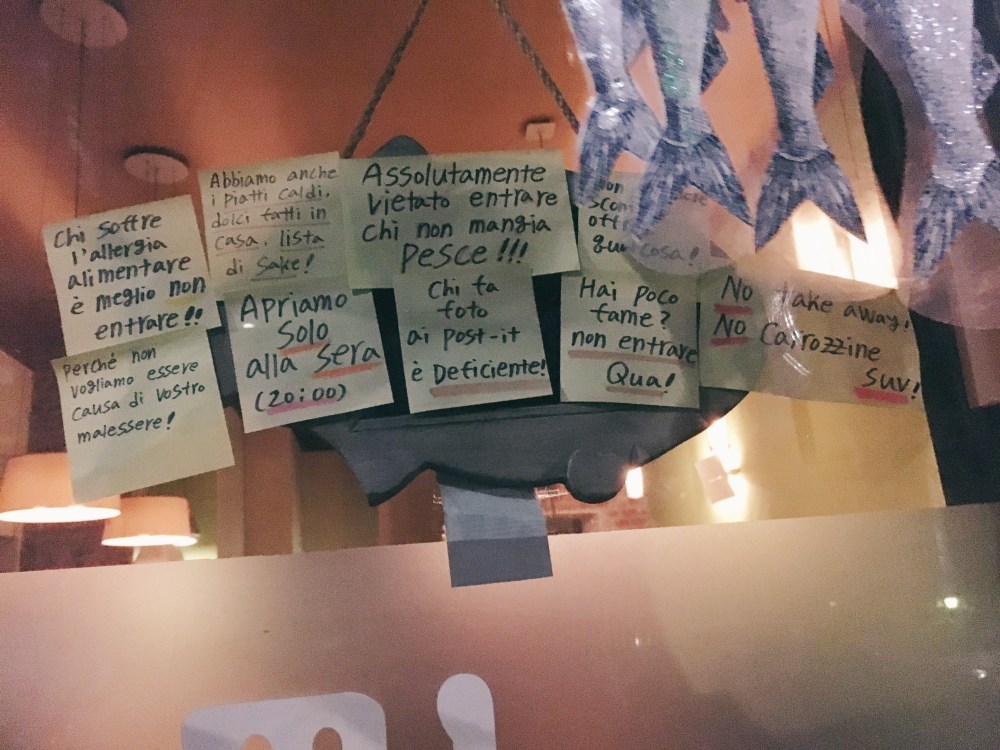 Chi soffre
l'allergia
alimentare
è meglio non
entrare!!
Perché non
vogliamo essere
causa di vostro
malessere!
Abbiamo anche
i piatti caldi,
dolci fatti in
casa, lista
di Sake!
Apriamo
Solo
alla sera
(20:00)
Assolutamente
vietato entrare
chi non mangia
PESCE!!!
Chi fa
foto
ai post-it
è Deficiente!
cosa!
Hai poco
fame?
non entrare
Qua!
No take away!
No Carrozzine
SUV!